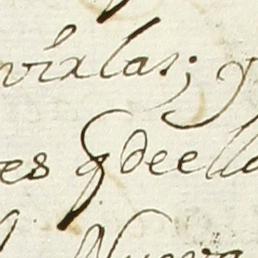 nvíxlas; y
es q̃ de ella
Nueva